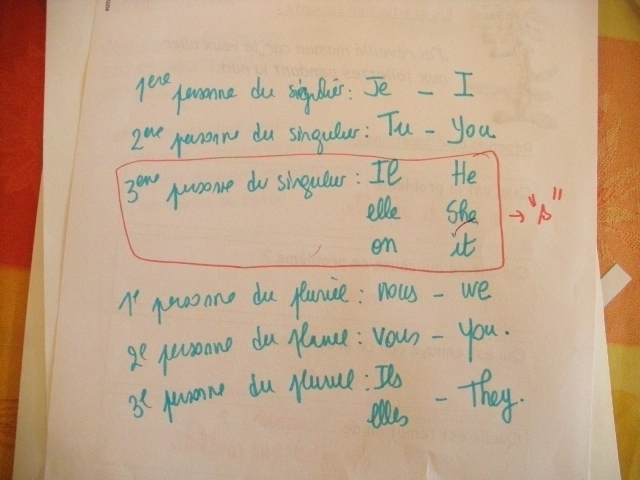 1ere personne du singulier : Je - I
2eme personne du singulier : Tu - You
3eme personne du singulier : Il He
elle She → "s"
on it
1e personne du pluriel : nous - we
2e personne du pluriel : vous - you.
3e personne du pluriel : Ils
elles - They.